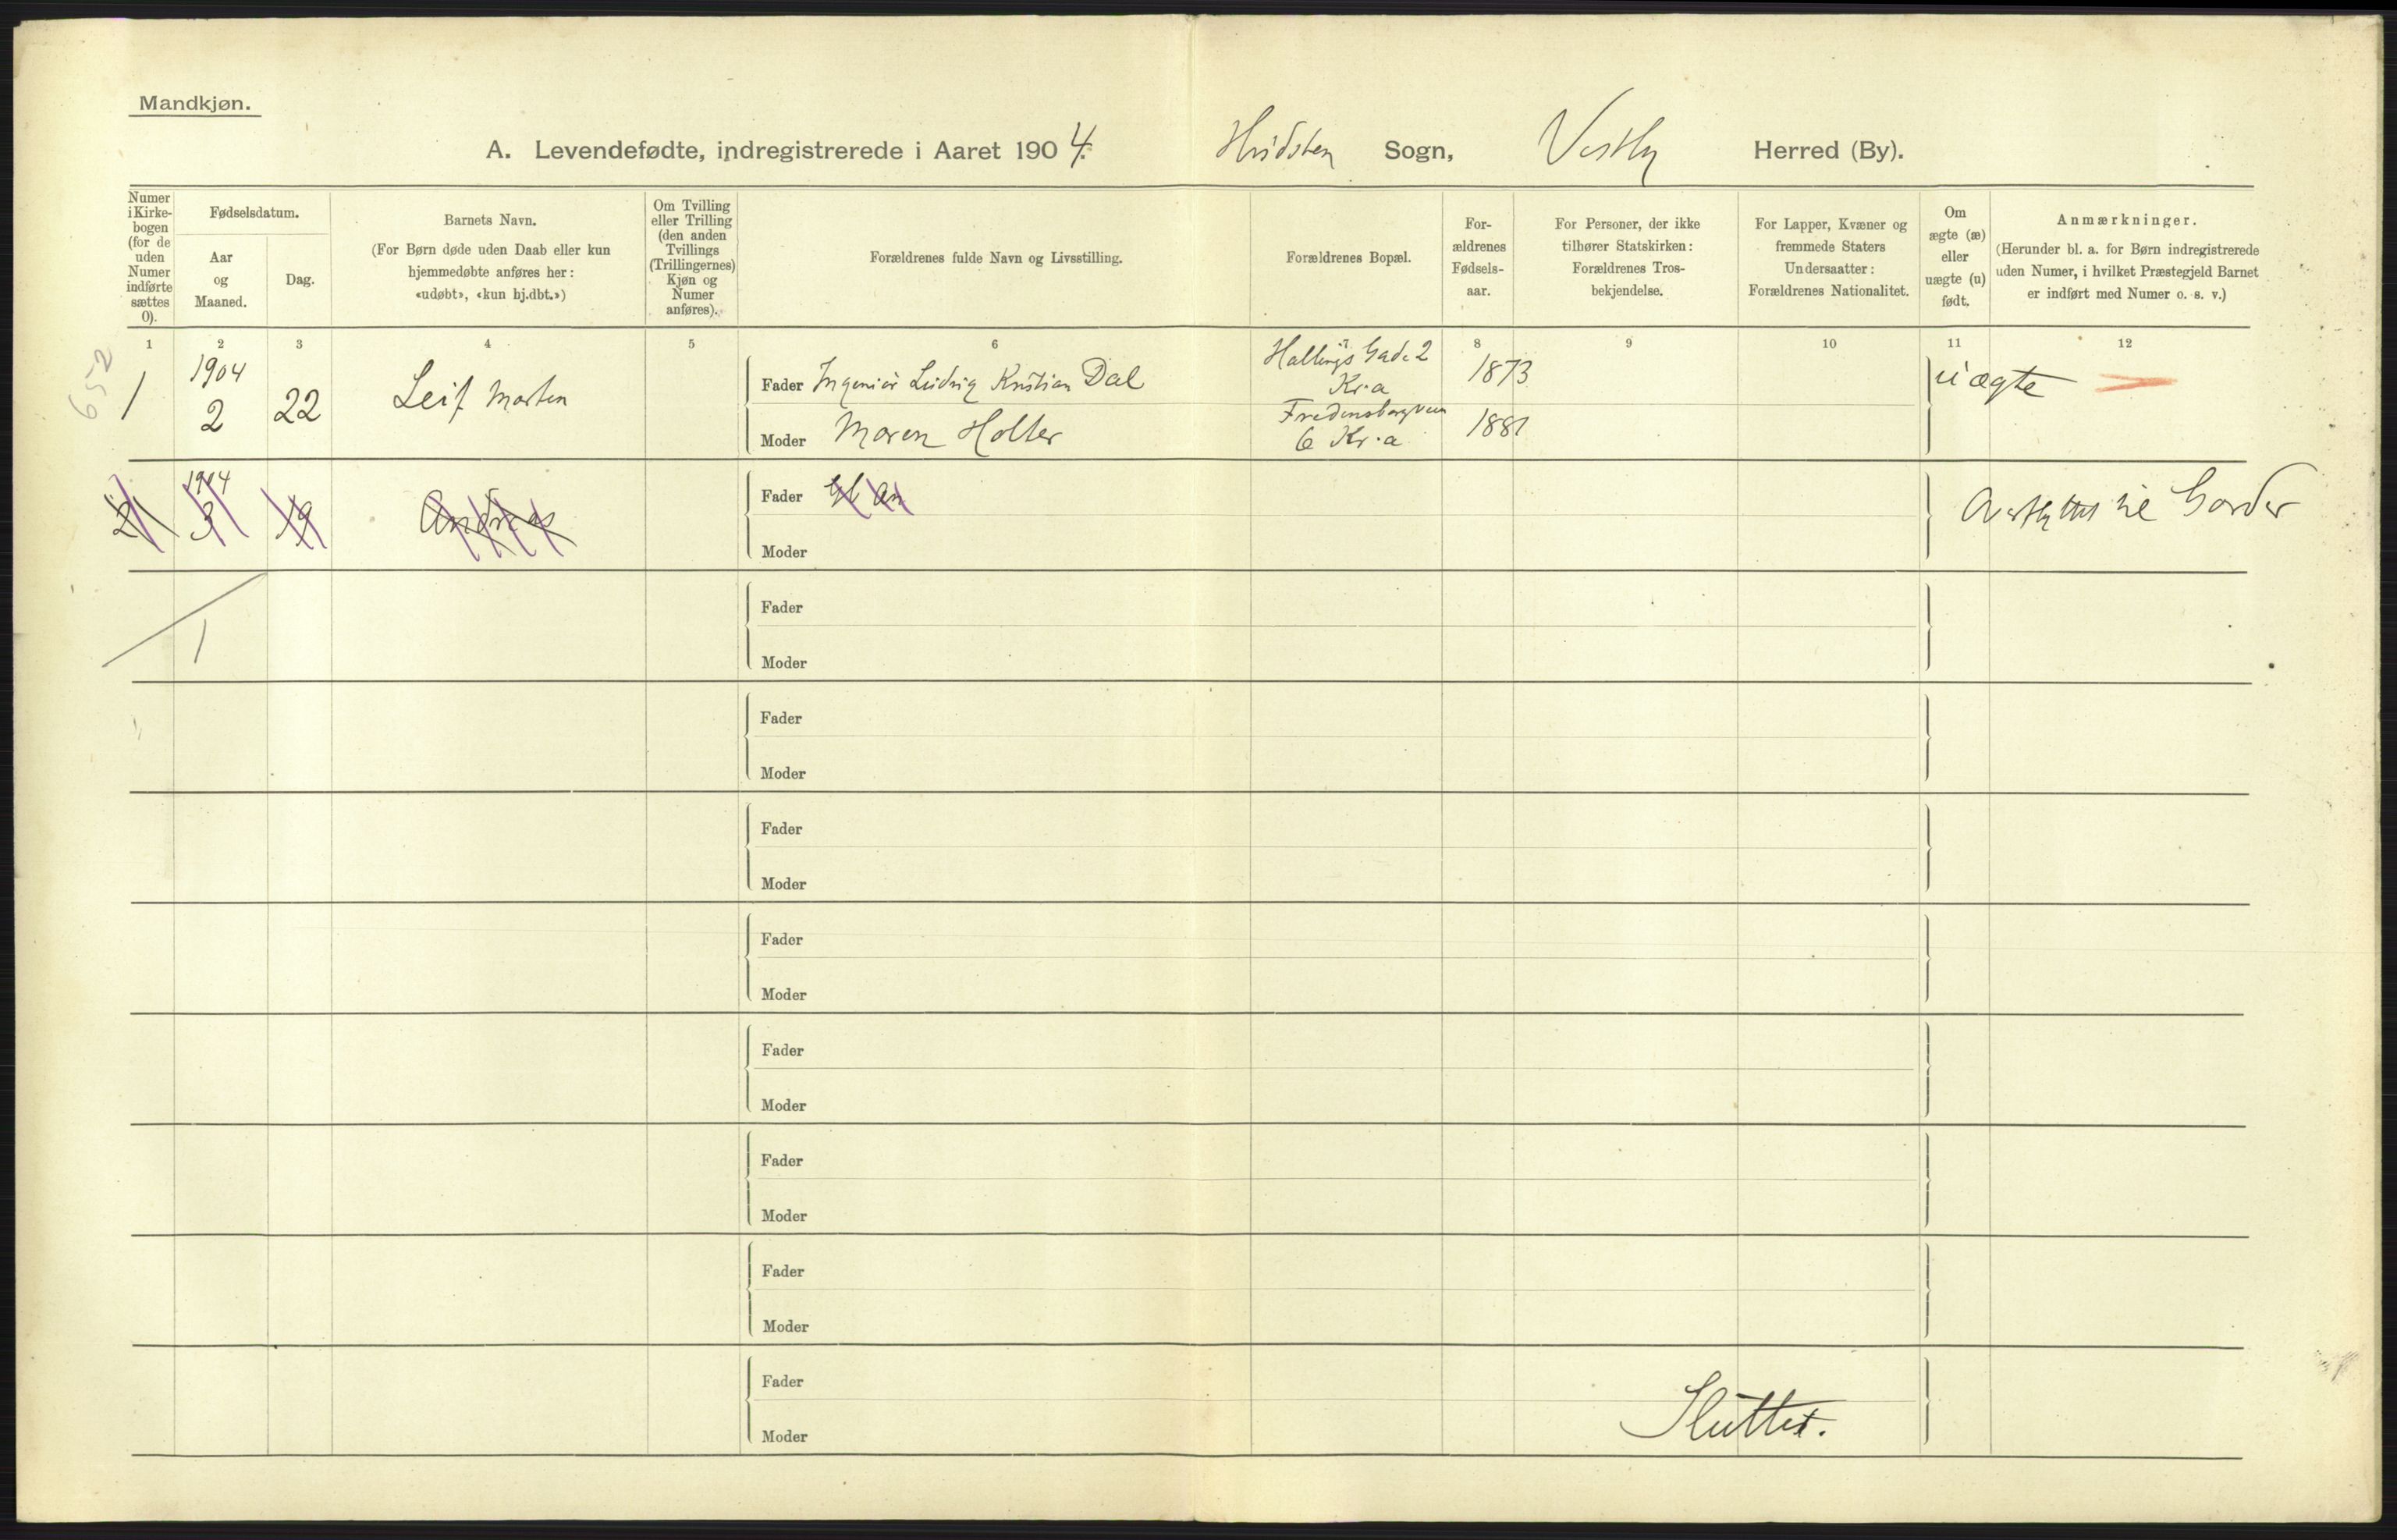 Mandkjøn.
A. Levendefødte, indregistrerede i Aaret 1904. Hvidsten Sogn, Vestby Herred (By).
Numer i Kirke-bogen (for de uden Numer indførte sættes 0).
Fødselsdatum.
Aar og Maaned.
Dag.
Barnets Navn.
(For Børn døde uden Daab eller kun
hjemmedøbte anføres her:
«udøbt», «kun hj.dbt.»)
Om Tvilling
eller Trilling
(den anden
Tvillings
(Trillingernes)
Kjøn og
Numer
anføres).
Forældrenes fulde Navn og Livsstilling.
Forældrenes Bopæl.
For-
ældrenes
Fødsels-
aar.
For Personer, der ikke
tilhører Statskirken:
Forældrenes Tros-
bekjendelse.
For Lapper, Kvæner og
fremmede Staters
Undersaatter:
Forældrenes Nationalitet.
Om
ægte (æ)
eller
uægte (u)
født.
Anmærkninger.
(Herunder bl. a. for Børn indregistrerede
uden Numer, i hvilket Præstegjeld Barnet
er indført med Numer o. s. v.)
1 2 3 4 5 6 7 8 9 10 11 12
652
1 1904 2 22 Leif Morten
Fader Ingeniør Ludvig Kristian Dal Hallings Gade 2 Kr.a 1873 uægte
Moder Maren Holter Fredensborgveien 6 Kr.a 1881
2 1904 3 19 Andreas
Fader Gl An Overflyttet til Garder
Moder
1
Fader
Moder
Fader
Moder
Fader
Moder
Fader
Moder
Fader
Moder
Fader
Moder
Fader
Moder
Fader
Moder
Sluttet.